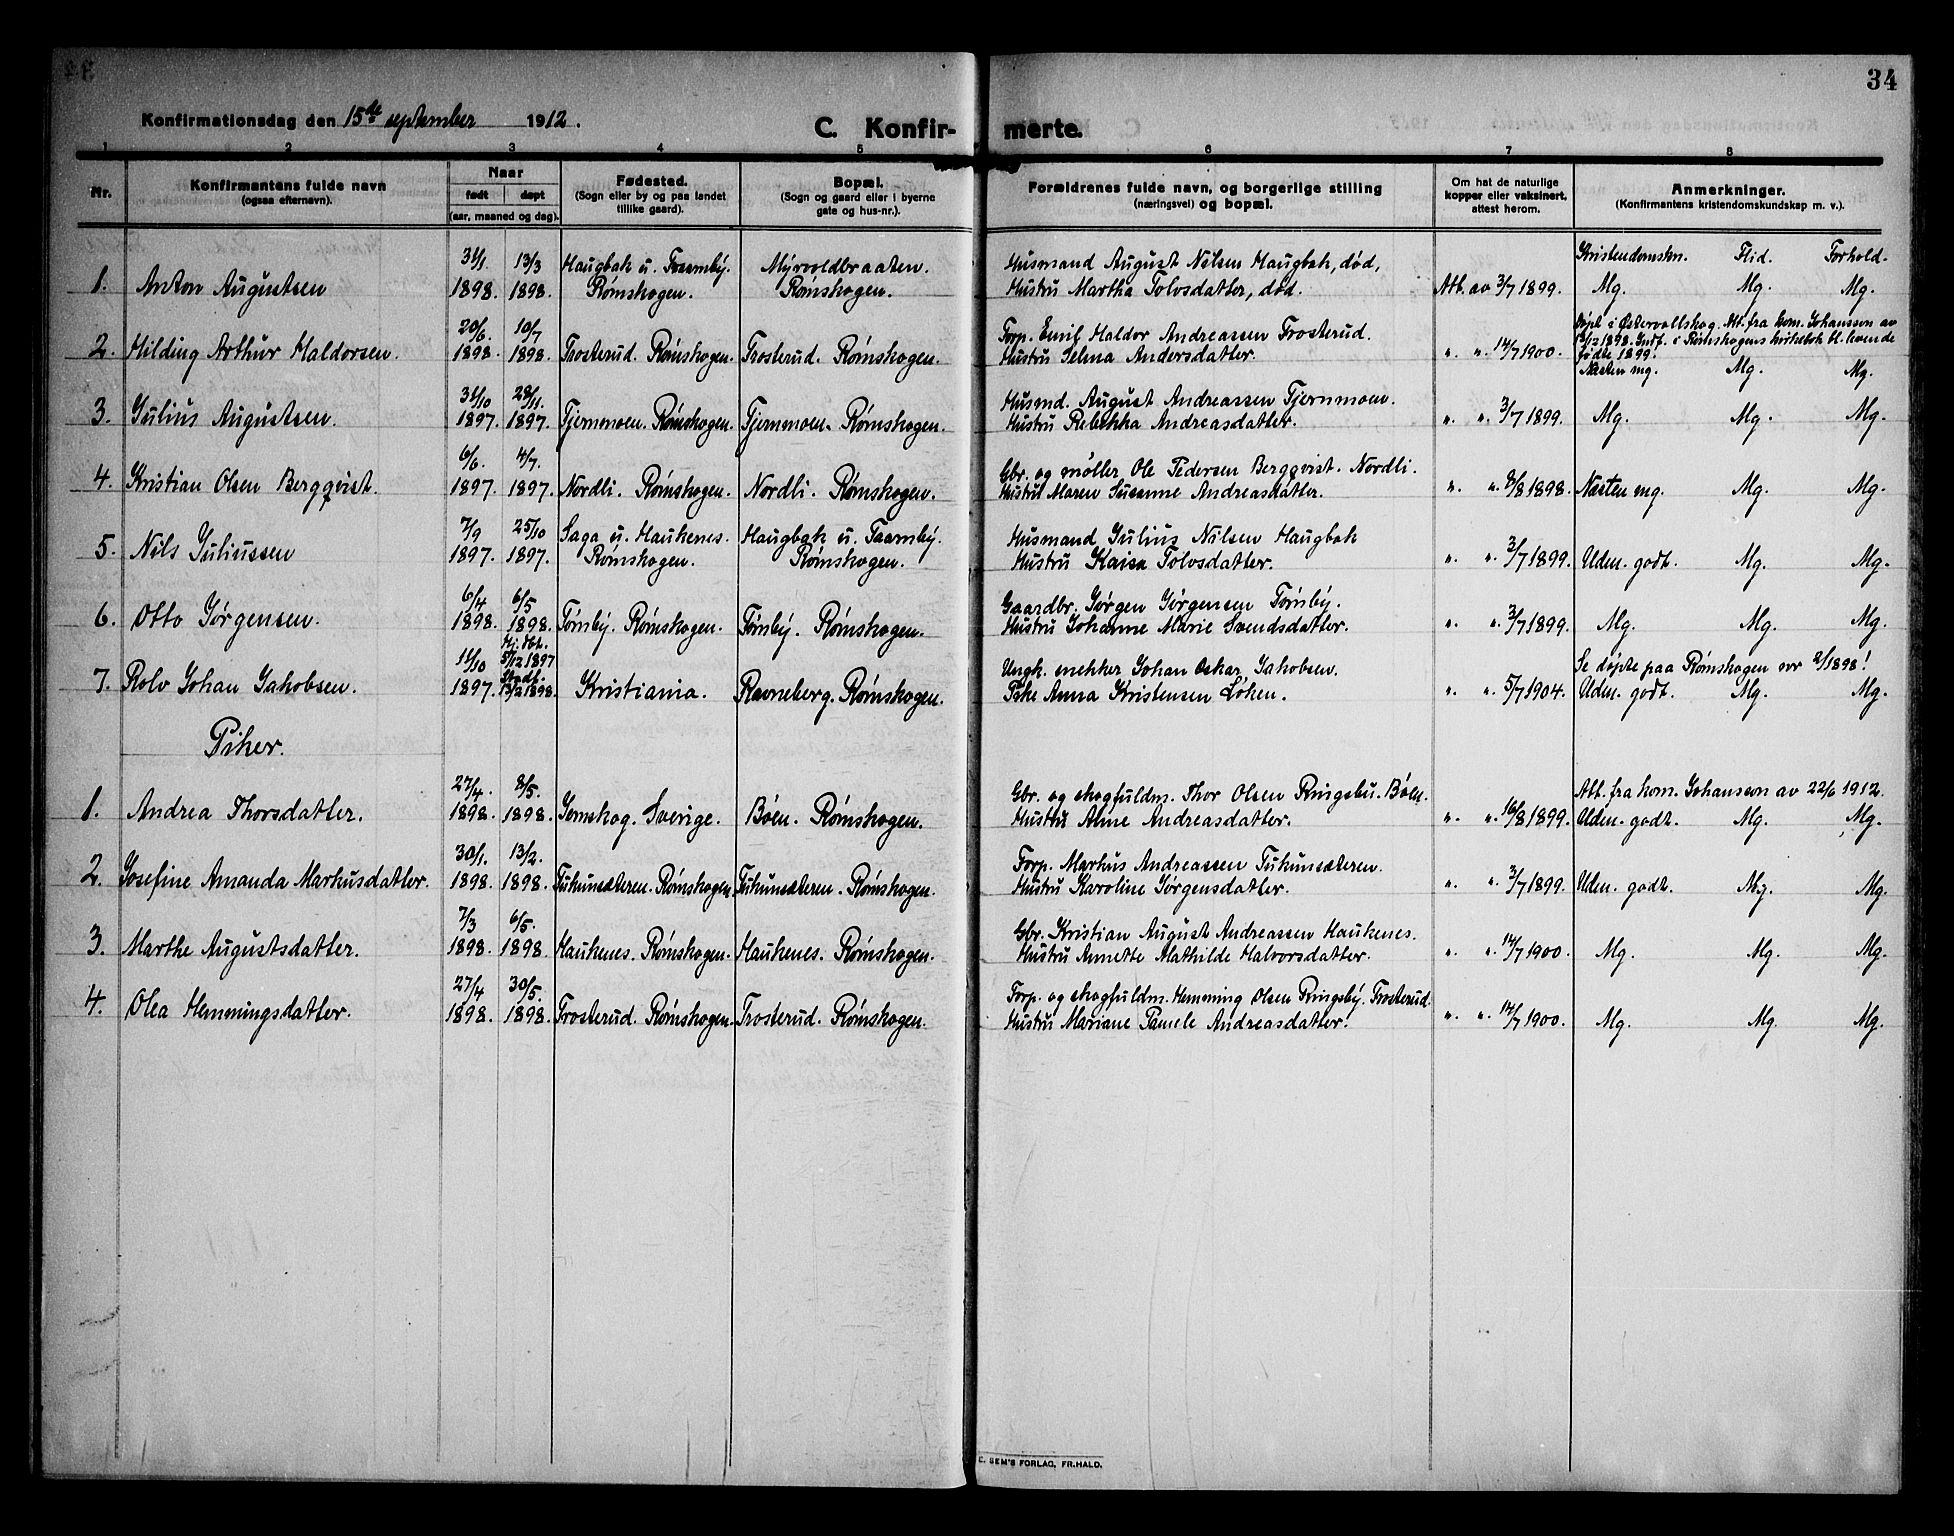 34
Konfirmationsdag den 15de september 1912.
C. Konfir- merte.
1 2 3 4 5 6 7 8
Nr.
Konfirmantens fulde navn
(ogsaa efternavn).
Naar
født døpt
(aar, maaned og dag).
Fødested.
(Sogn eller by og paa landet
tillike gaard).
Bopæl.
(Sogn og gaard eller i byerne
gate og hus-nr.).
Forældrenes fulde navn, og borgerlige stilling
(næringsvei) og bopæl.
Om hat de naturlige
kopper eller vaksinert,
attest herom.
Anmerkninger.
(Konfirmantens kristendomskundskap m. v.).
Kristendomskn. Flid. Forhold.
31/1 13/3 Haugbak u. Taarnby. Myrvoldbraaten. Husmand August Nilsen Haugbak, død,
1. Anton Augustsen 1898. 1898. Rømskogen. Rømskogen. Hustru Martha Tolvsdatter, død. Att. av 3/7 1899. Mg. Mg. Mg.
20/6 10/7 Forp. Emil Haldor Andreassen Trosterud. Døpt i Østervallskog. Att. fra kom. Johansson av
2. Hilding Arthur Haldorsen. 1898. 1898. Trosterud. Rømskogen. Trosterud. Rømskogen. Hustru Selma Andersdatter. " " 14/7 1900. 1898. Indf. i Rømskogens kirkebok bl. kvinde
fødte 1899!
Næsten mg. Mg. Mg.
31/10 28/11. Husmd. August Andreassen Tjernmoen.
3. Julius Augustsen. 1897. 1897. Tjernmoen. Rømskogen. Tjernmoen. Rømskogen. Hustru Rebekka Andreasdatter. " " 3/7 1899. Mg. Mg. Mg.
6/6. 4/7. Gbr. og møller Ole Pedersen Bergqvist. Nordli.
4. Kristian Olsen Bergqvist. 1897. 1897. Nordli. Rømskogen. Nordli. Rømskogen. Hustru Maren Susanne Andreasdatter. " " 8/8 1898. Næsten mg. Mg. Mg.
7/9 25/10 Saga u. Haukenes. Haugbak u. Taarnby. Husmand Julius Nilsen Haugbak
5. Nils Juliussen 1897. 1897. Rømskogen. Rømskogen. Hustru Kaisa Tolvsdatter. " " 3/7 1899. Uden. godt. Mg. Mg.
6/4 6/5 Gaardbr. Jørgen Jørgensen Tørnby.
6. Otto Jørgensen. 1898. 1898. Tørnby. Rømskogen. Tørnby. Rømskogen. Hustru Johanne Marie Svendsdatter. " " 3/7 1899. Mg. Mg. Mg.
Hj. dbt.
11/10 5/12 1897 Ungk. snekker Johan Oskar Jakobsen. Se døpte paa Rømskogen nr 2/1898!
Stadf.
7. Rolv Johan Jakobsen. 1897. 13/2 1898. Kristiania. Ravneberg. Rømskogen. Pike Anna Kristensen Løken. " " 5/7 1904. Uden. godt. Mg. Mg.
Piker.
27/4. 8/5. Gbr. og skogfuldm. Thor Olsen Ringsbu. Bøen. Att. fra kom. Johansson av 22/6 1912.
1. Andrea Thorsdatter. 1898. 1898. Jemskog. Sverige. Bøen. Rømskogen. Hustru Anne Andreasdatter. " " 16/8 1899. Uden. godt. Mg. Mg.
30/1. 13/2. Forp. Markus Andreassen Tukunsæteren.
2. Josefine Amanda Markusdatter. 1898. 1898. Tukunsæteren. Rømskogen. Tukunsæteren. Rømskogen. Hustru Karoline Jørgensdatter. " " 3/7 1899. Uden. godt. Mg. Mg.
7/3 6/5. Gbr. Kristian August Andreassen Haukenes.
3. Marthe Augustsdatter. 1898. 1898. Haukenes. Rømskogen. Haukenes. Rømskogen. Hustru Annette Mathilde Halvorsdatter. " " 14/7 1900. Mg. Mg. Mg.
27/4 30/5. Forp. og skogfuldm. Hemming Olsen Ringsby. Trosterud.
4. Olea Hemmingsdatter. 1898. 1898. Trosterud. Rømskogen. Trosterud. Rømskogen. Hustru Mariane Pamele Andreasdatter. " " 14/7 1900. Mg. Mg. Mg.
E. SEM'S FORLAG, FR.HALD.